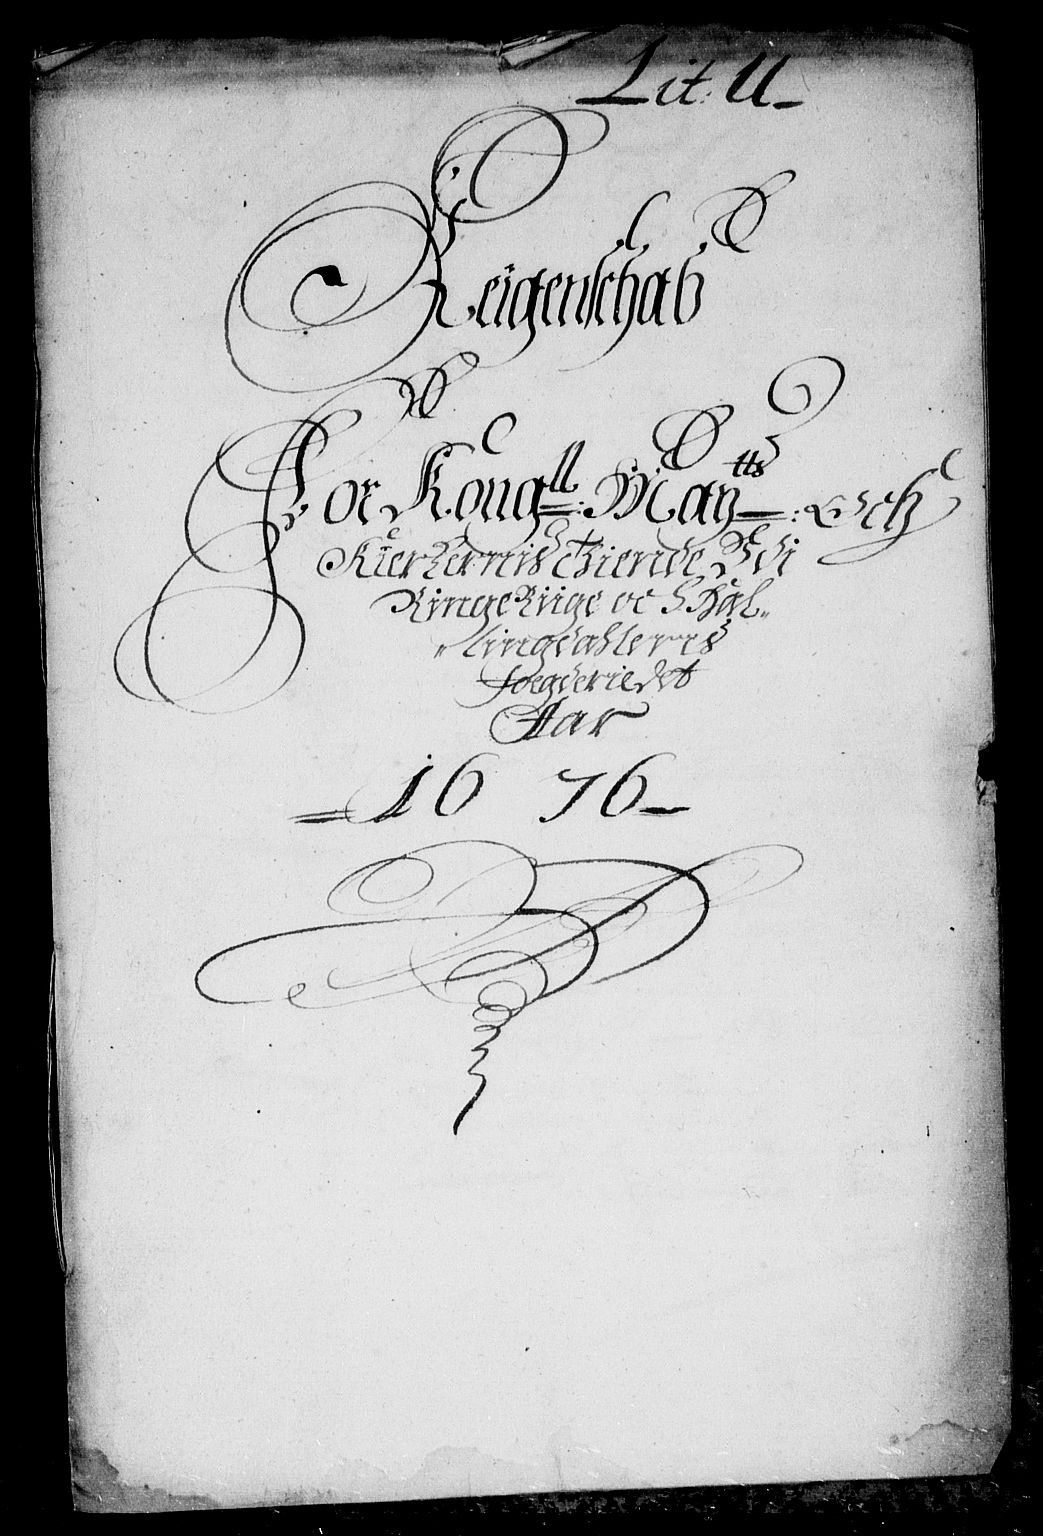 Lit: U
Reigenschab
For Kong:ll: May:tts: Och
Kierkernis Thiende Udi
Ringerige oc Hal-
lingdahlens
Foegderie det
Aar
1676